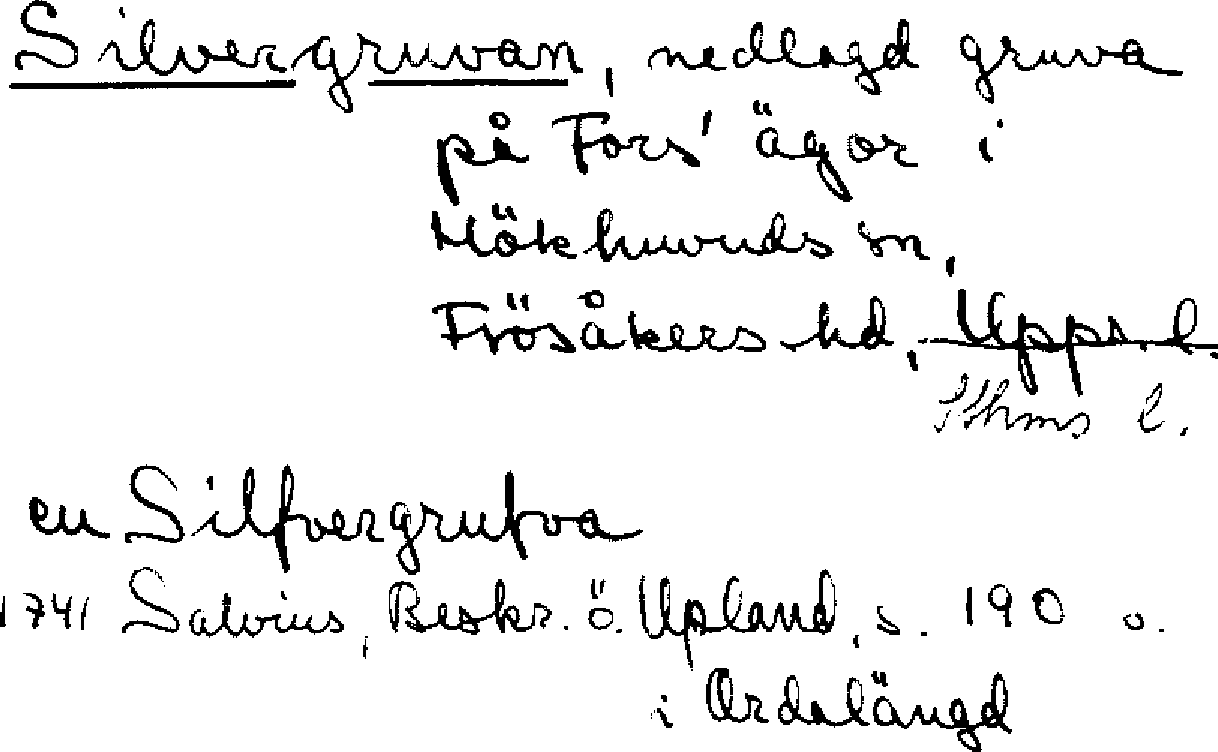 Silvergruvan, nedlagd gruva
på Fors' ägor i
Hökhuvuds sn,
Frösåkers hd, Upps. l.
Sthms l.
en Silfvergrufva
1741 Salvius, Beskr. ö. Upland, s. 190 o.
i Ordalängd